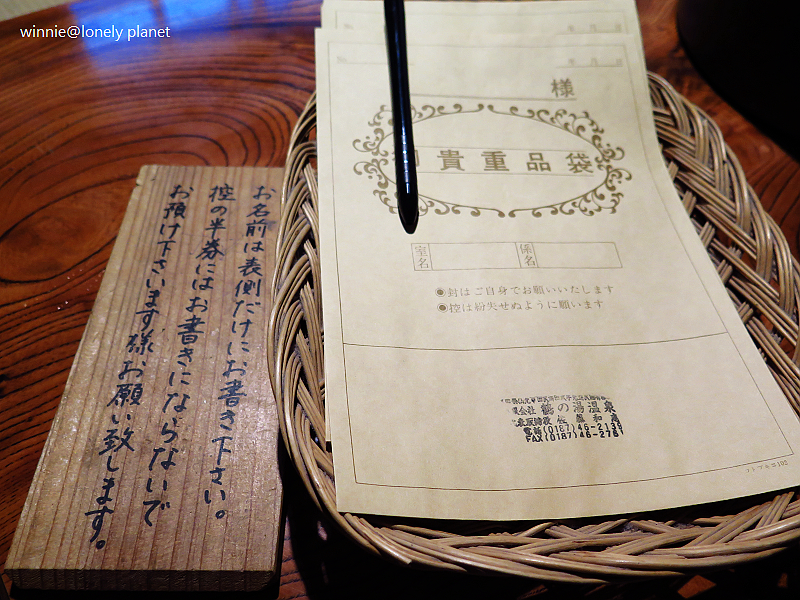 winnie@lonely planet
お名前は表側だけにお書き下さい。
控の半券にはお書きにならないで
お預け下さいます様お願い致します。
様
貴重品袋
室名
係名
◉封はご自身でお願いいたします
◉控は紛失せぬように願います
鶴の湯温泉
電話(0187)46-2139
FAX(0187)46-2761